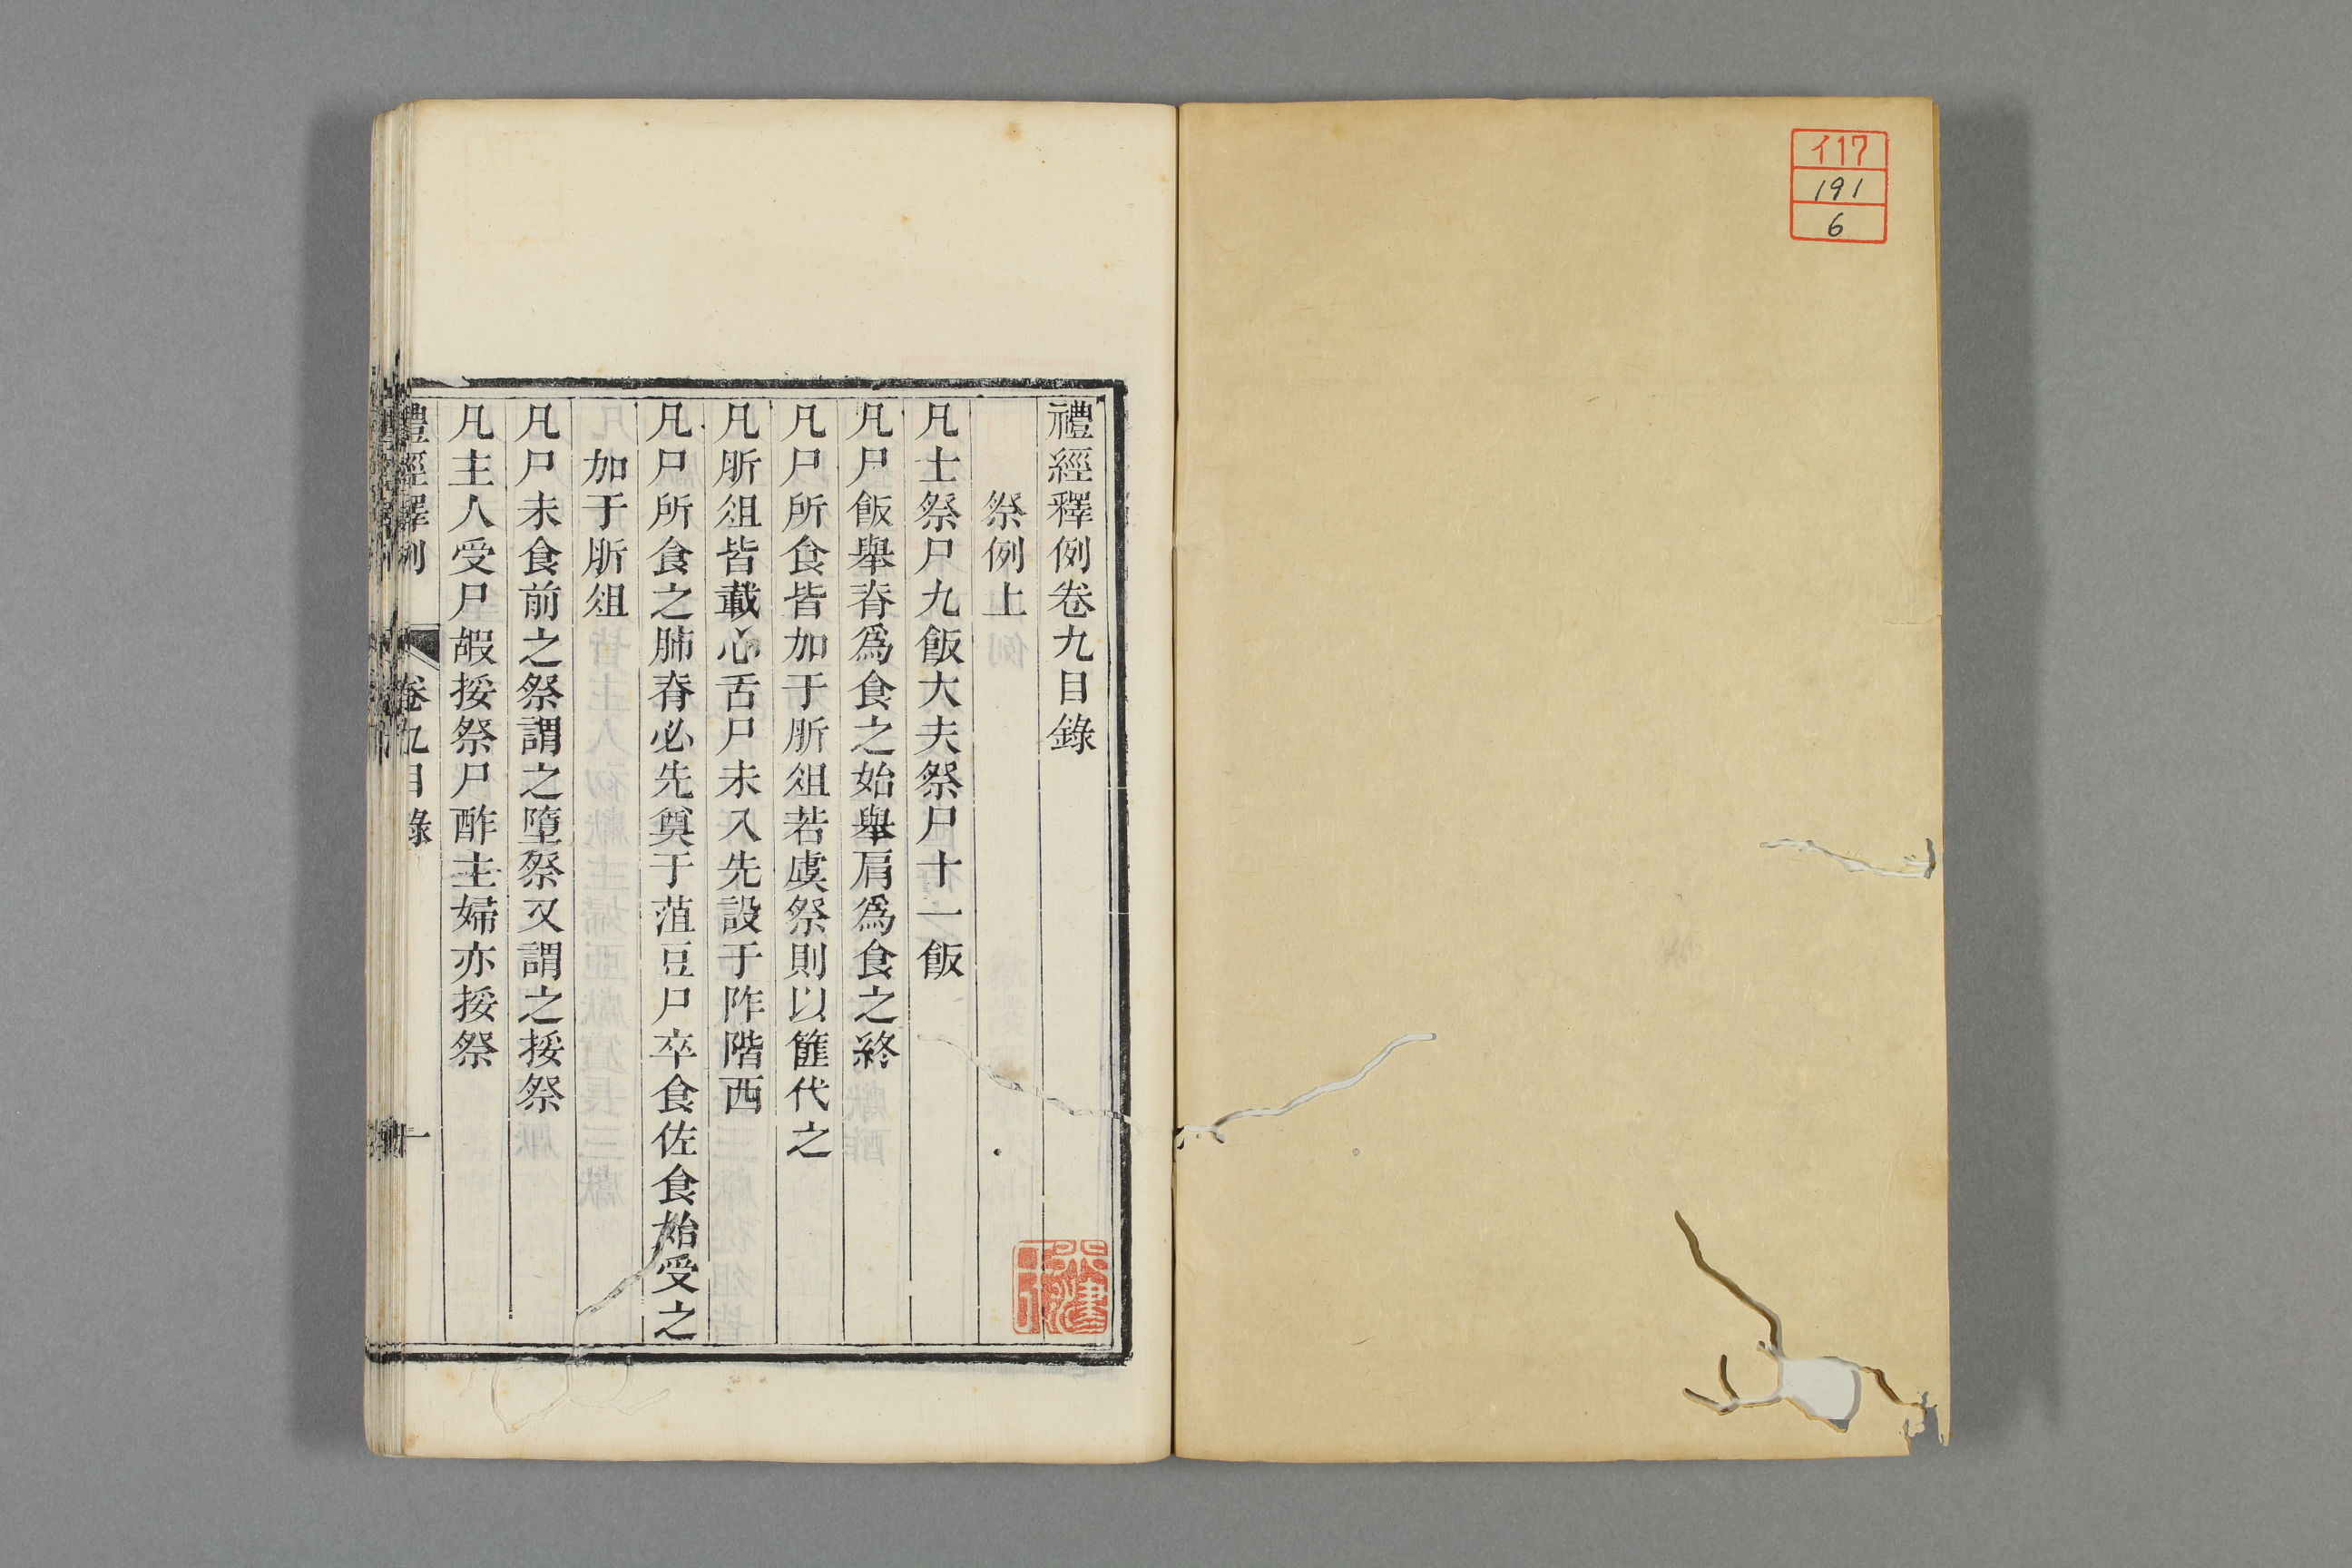 イ17
191
6
禮經釋例卷九目錄
祭例上
凡士祭尸九飯大夫祭尸十一飯
凡尸飯舉脊爲食之始舉肩爲食之終
凡尸所食皆加于肵俎若虞祭則以篚代之
凡肵俎皆載心舌尸未入先設于阼階西
凡尸所食之肺脊必先奠于菹豆尸卒食佐食始受之
加于肵俎
凡尸未食前之祭謂之墮祭又謂之挼祭
凡主人受尸嘏挼祭尸酢主婦亦挼祭
禮經釋例 卷九目錄 一